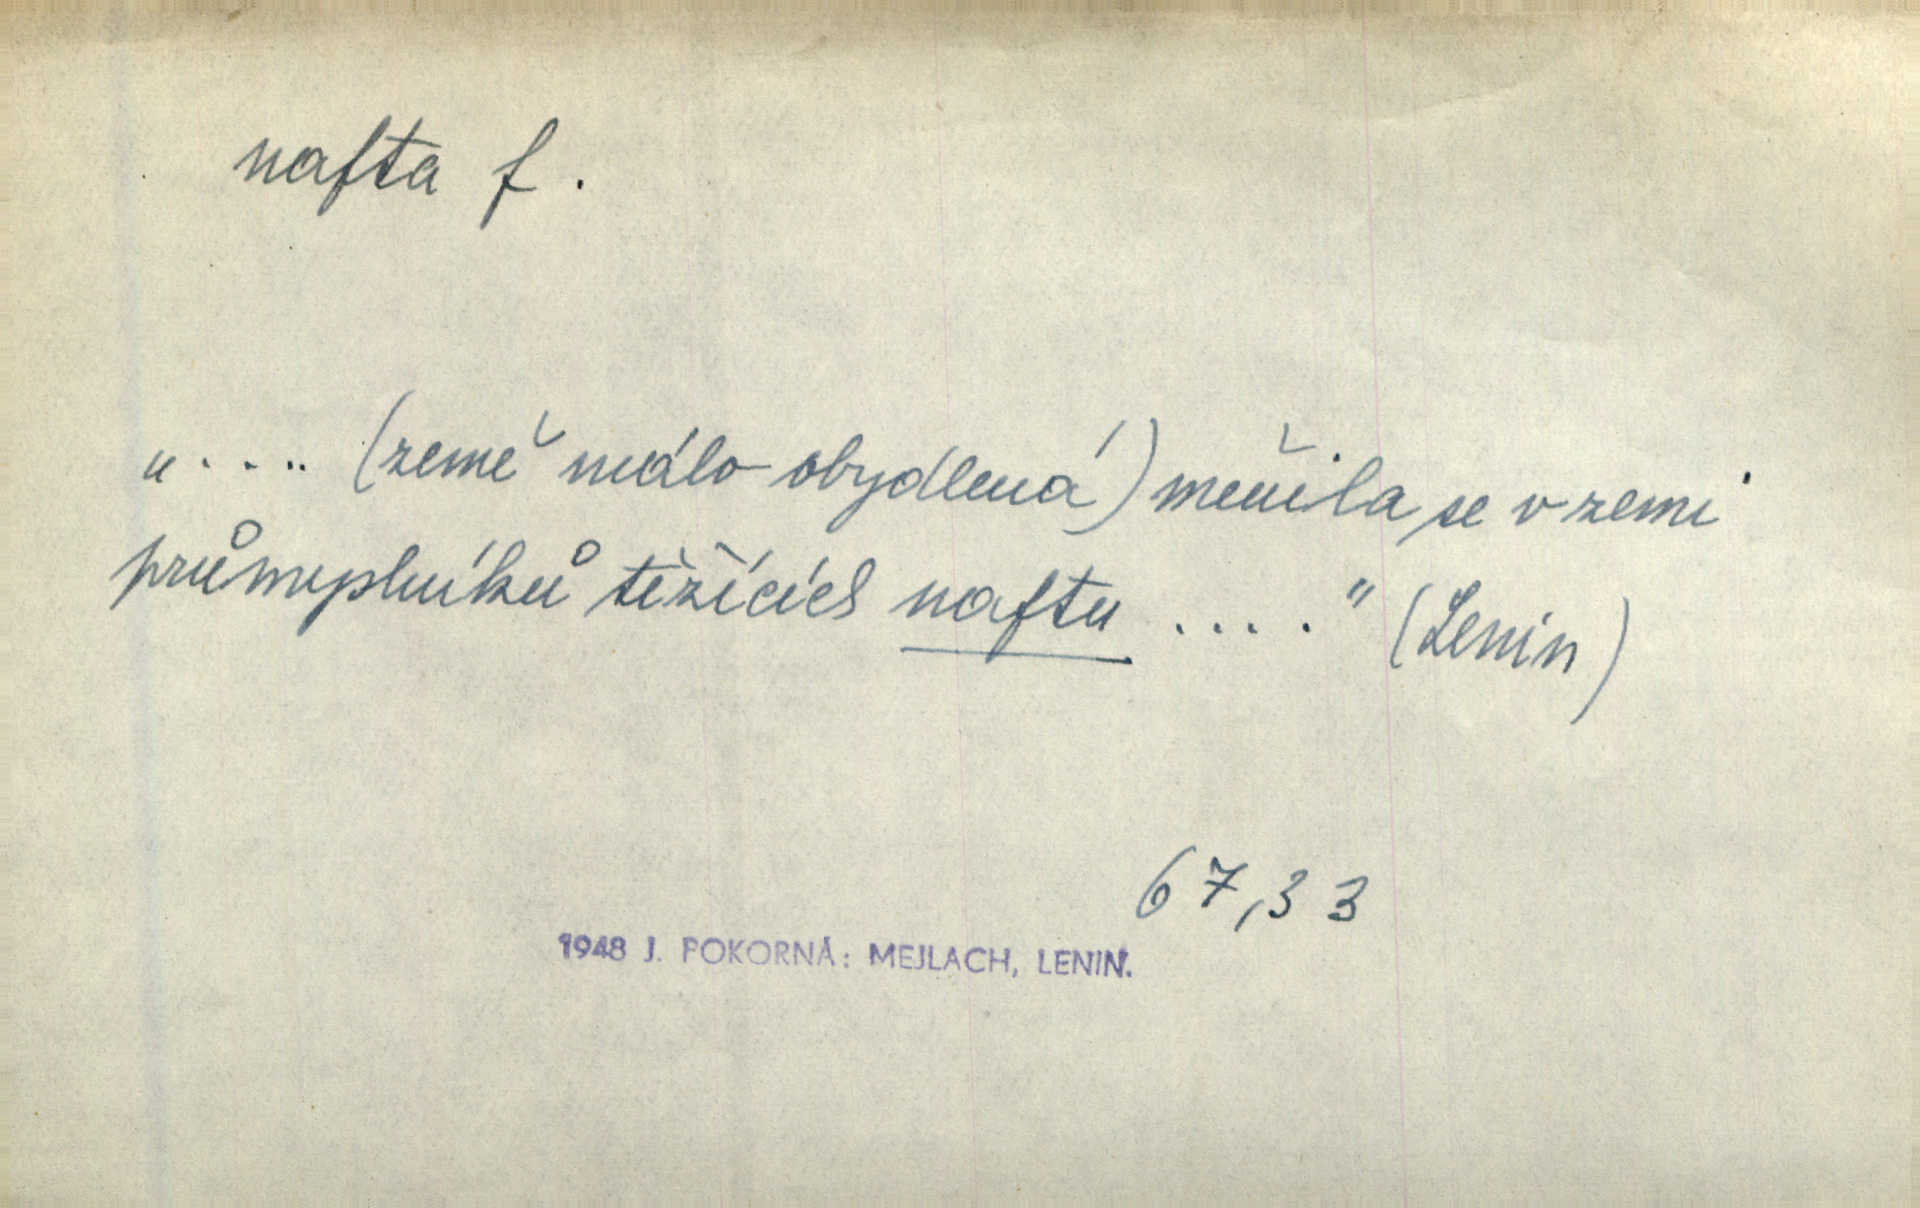 nafta f.
„.... (země málo obydlená) měnila se v zemi
průmyslníků těžících naftu ....“ (Lenin)
67,33
1948 J. POKORNÁ: MEJLACH, LENIN.